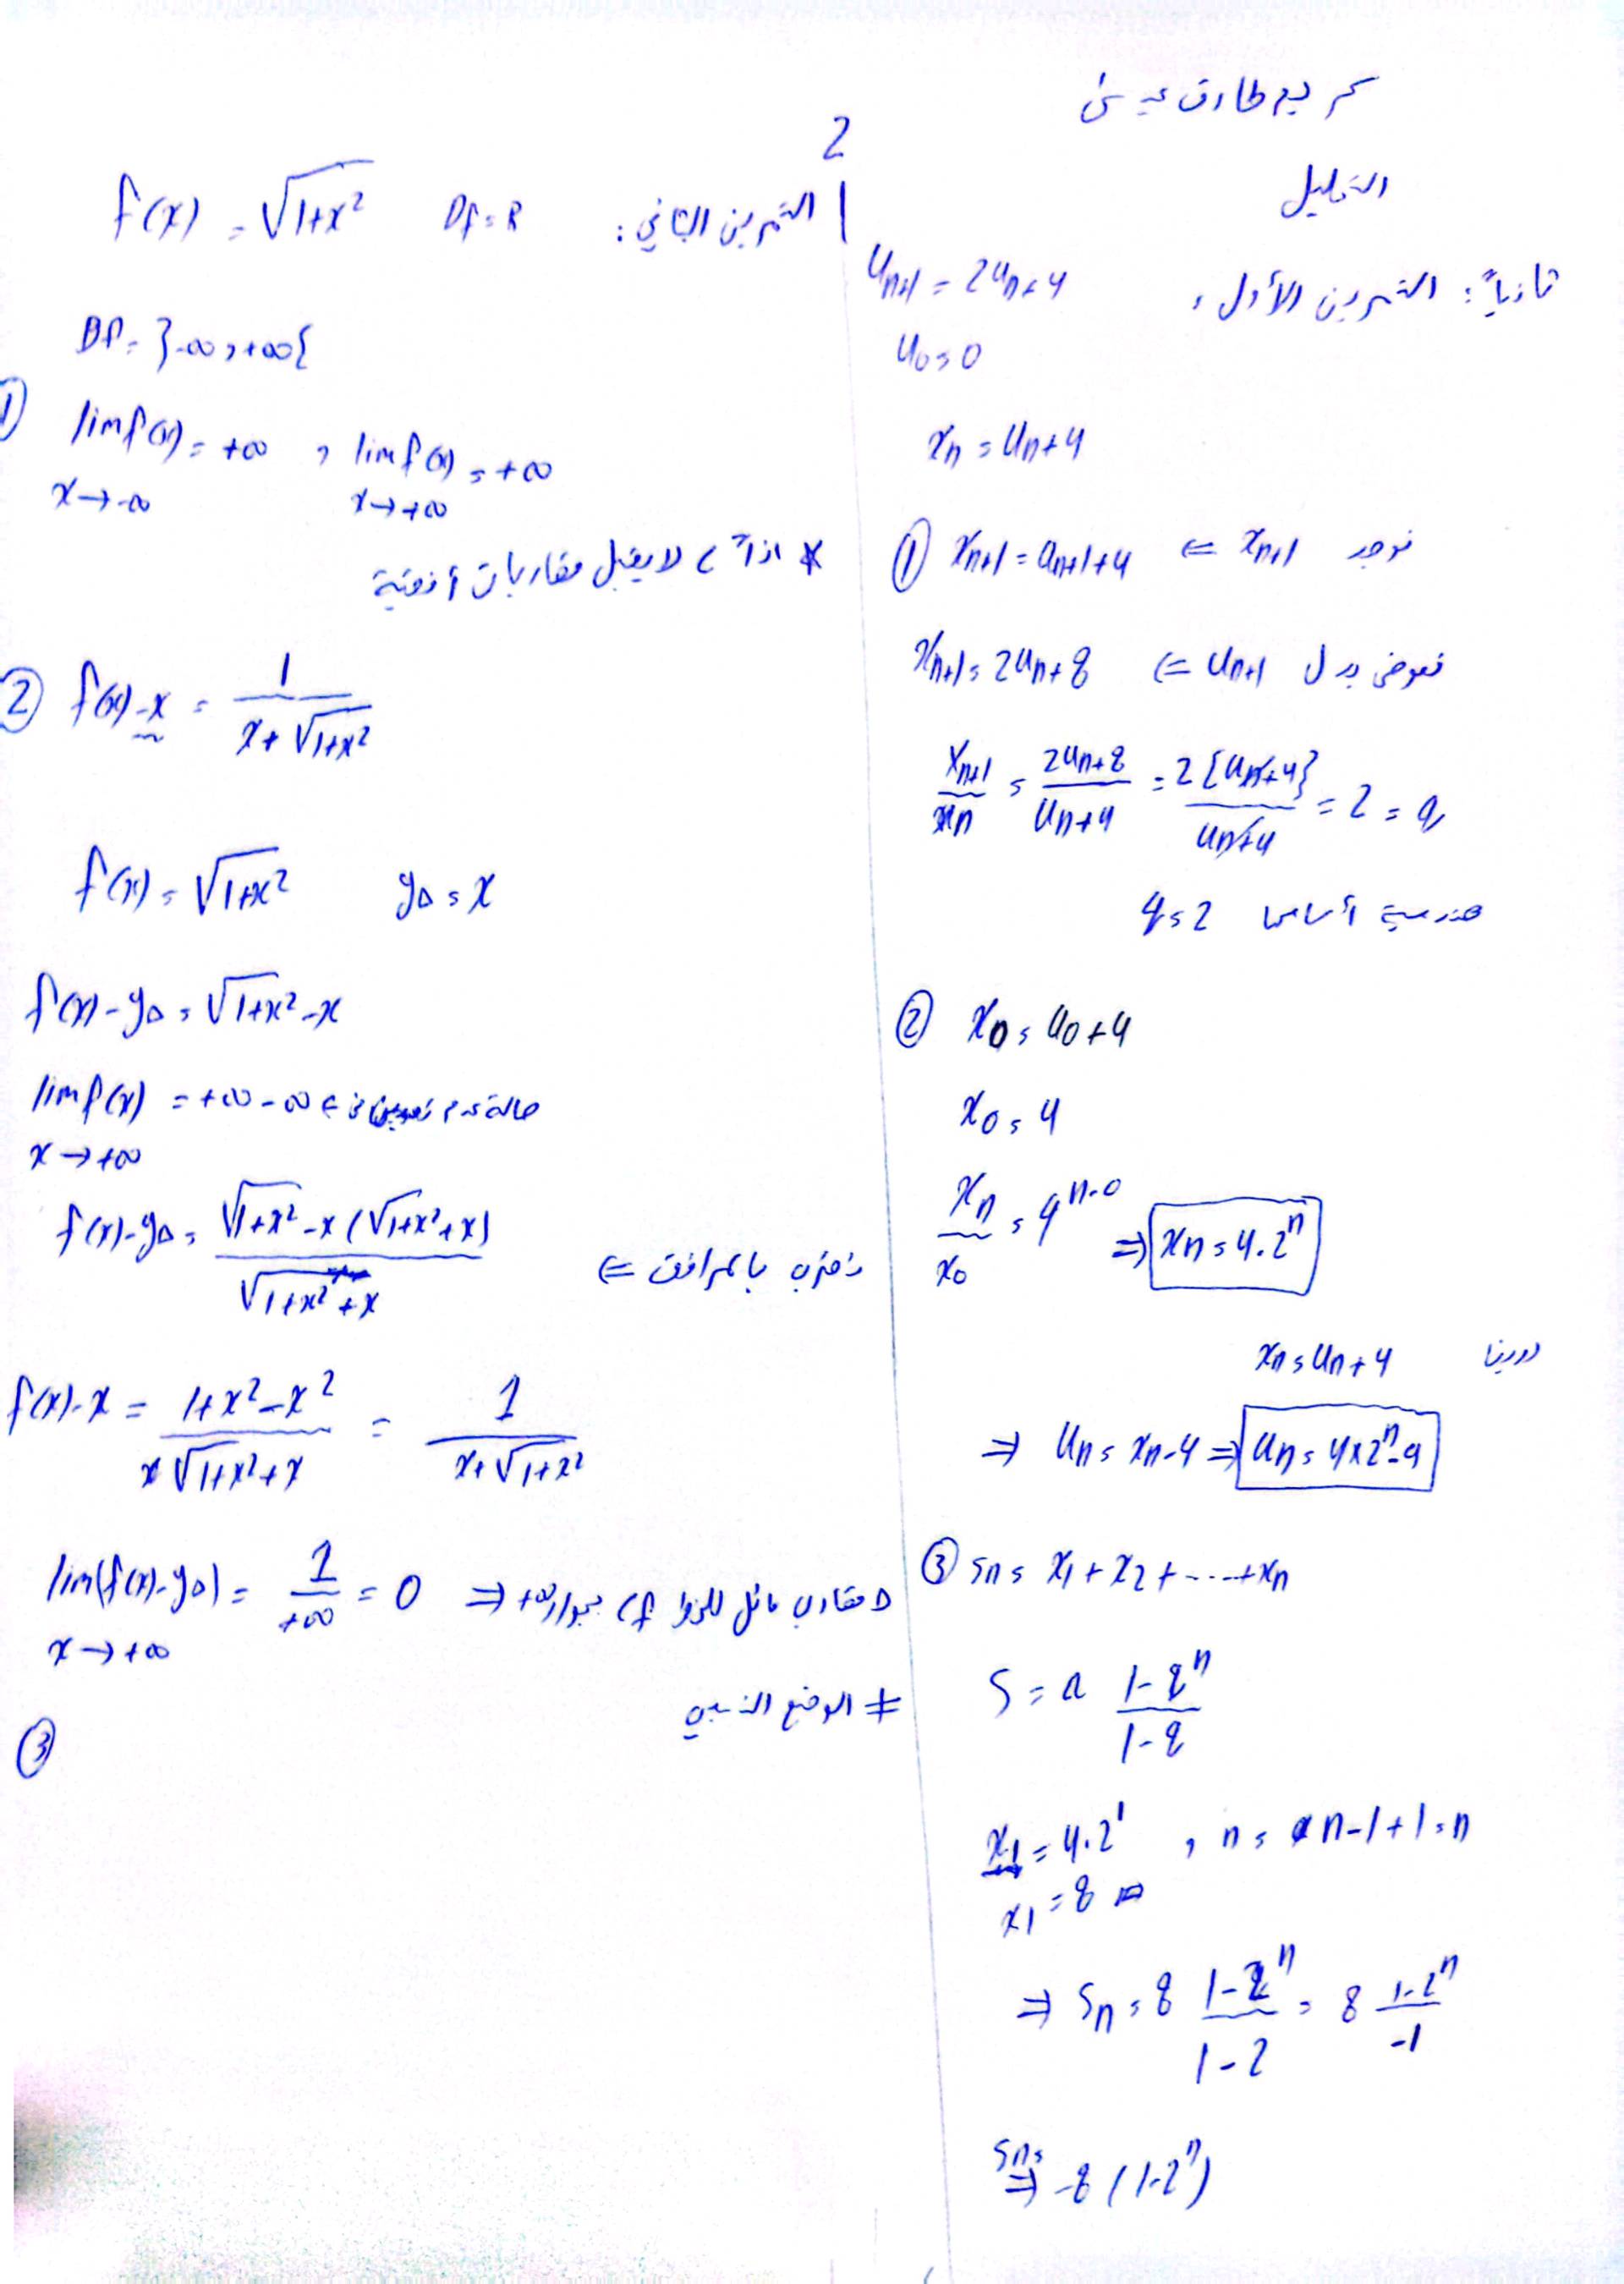 كريم طارق عيسى
التحليل
ثانياً: التمرين الأول:
u_{n+1} = 2u_n + 4
u_0 = 0
x_n = u_n + 4
① x_{n+1} = u_{n+1} + 4 ⇐ x_{n+1} نوجد
x_{n+1} = 2u_n + 8 ⇐ u_{n+1} نعوض بدل
x_{n+1}/x_n = (2u_n + 8)/(u_n + 4) = 2{u_n + 4}/(u_n + 4) = 2 = q
هندسية أساسها q = 2
② x_0 = u_0 + 4
x_0 = 4
x_n/x_0 = q^{n-0} ⇒ x_n = 4 . 2^n
لدينا x_n = u_n + 4
⇒ u_n = x_n - 4 ⇒ u_n = 4 × 2^n - 4
③ S_n = x_1 + x_2 + ---- + x_n
S = a (1 - q^n)/(1 - q)
x_1 = 4 . 2^1 , n = n - 1 + 1 = n
x_1 = 8
⇒ S_n = 8 (1 - 2^n)/(1 - 2) = 8 (1 - 2^n)/(-1)
S_n =
⇒ -8 (1 - 2^n)
2
التمرين الثاني: f(x) = √(1+x²) Df = R
Df = }-∞ , +∞{
① lim f(x) = +∞ , lim f(x) = +∞
x → -∞ x → +∞
* اذاً C لا يقبل مقاربات أفقية
② f(x) - x = 1/(x + √(1+x²))
f(x) = √(1+x²) y_Δ = x
f(x) - y_Δ = √(1+x²) - x
lim f(x) = +∞ - ∞ حالة عدم تعيين
x → +∞
f(x) - y_Δ = √(1+x²) - x (√(1+x²) + x) / (√(1+x²) + x) ⇐ نضرب بالمرافق
f(x) - x = (1 + x² - x²)/(√(1+x²) + x) = 1/(x + √(1+x²))
lim(f(x) - y_Δ) = 1/+∞ = 0 ⇒ Δ مقارب مائل للخط C_f بجوار +∞
x → +∞
* الوضع النسبي
③